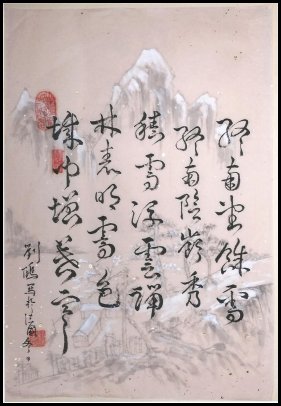 終南望餘雪
終南陰嶺秀
積雪浮雲端
林表明霽色
城中增暮寒
劉 寫於法國